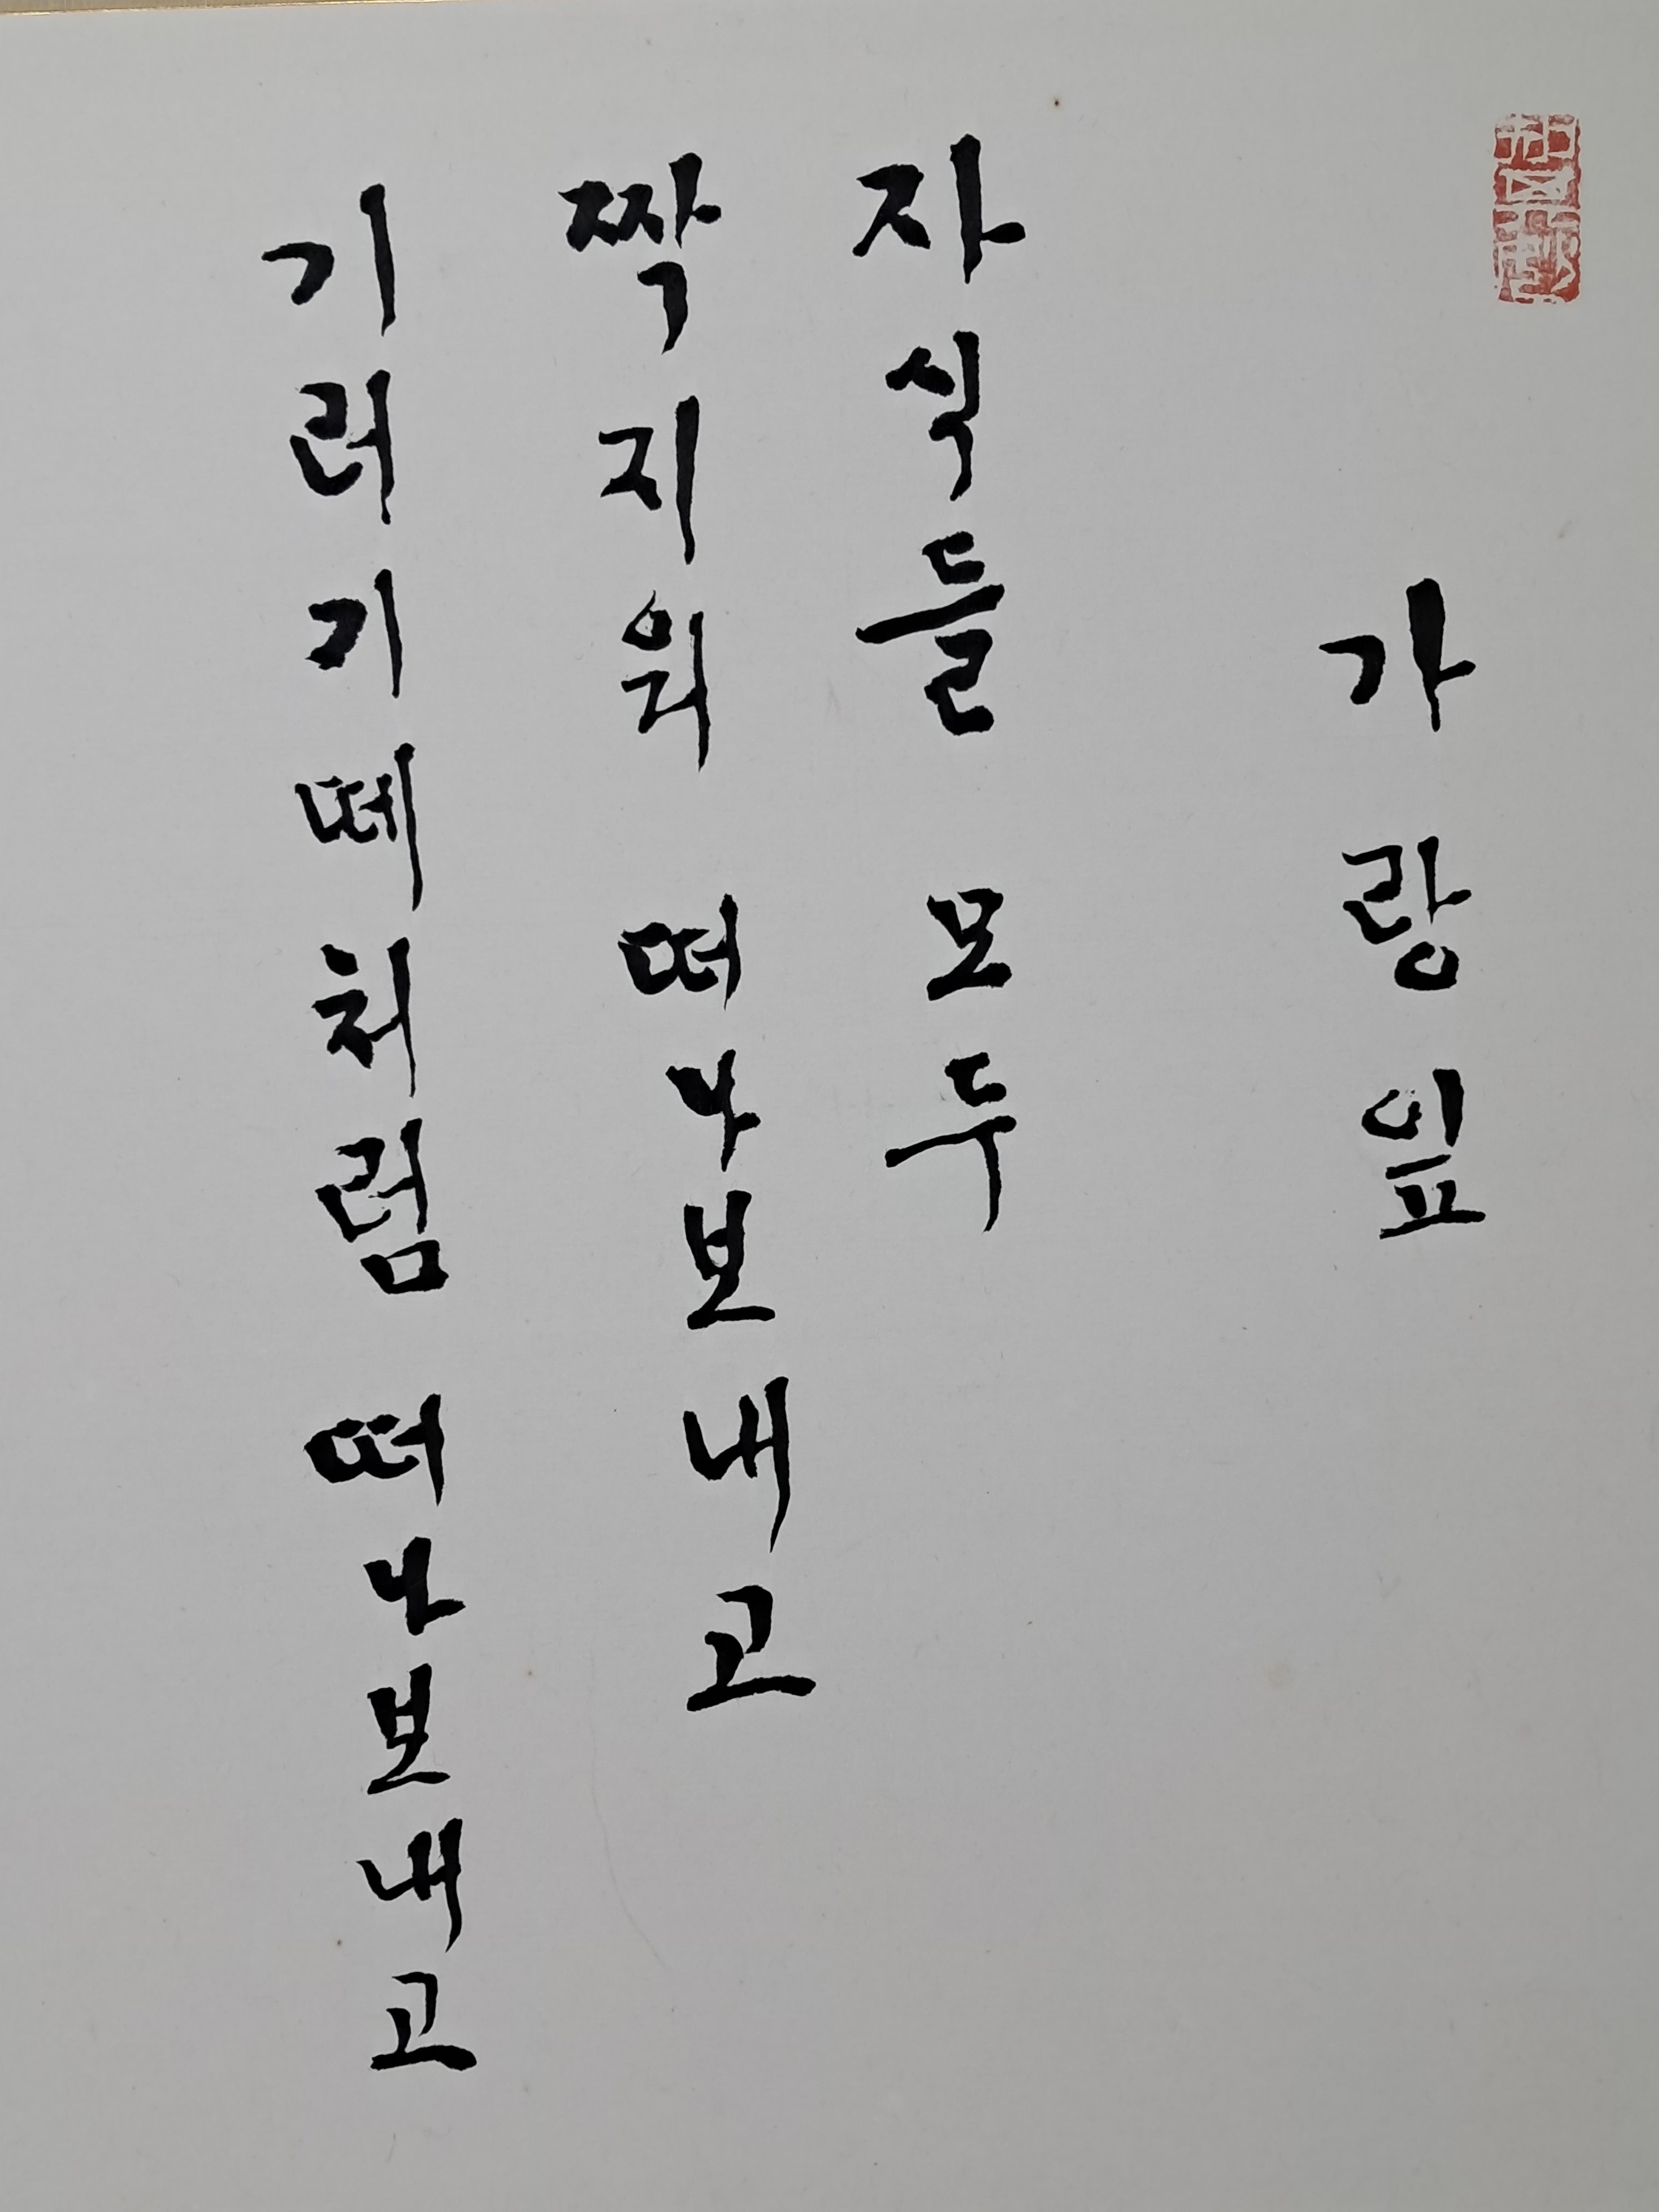 가랑잎
자식들 모두
짝지워 떠나보내고
기러기떼처럼 떠나보내고